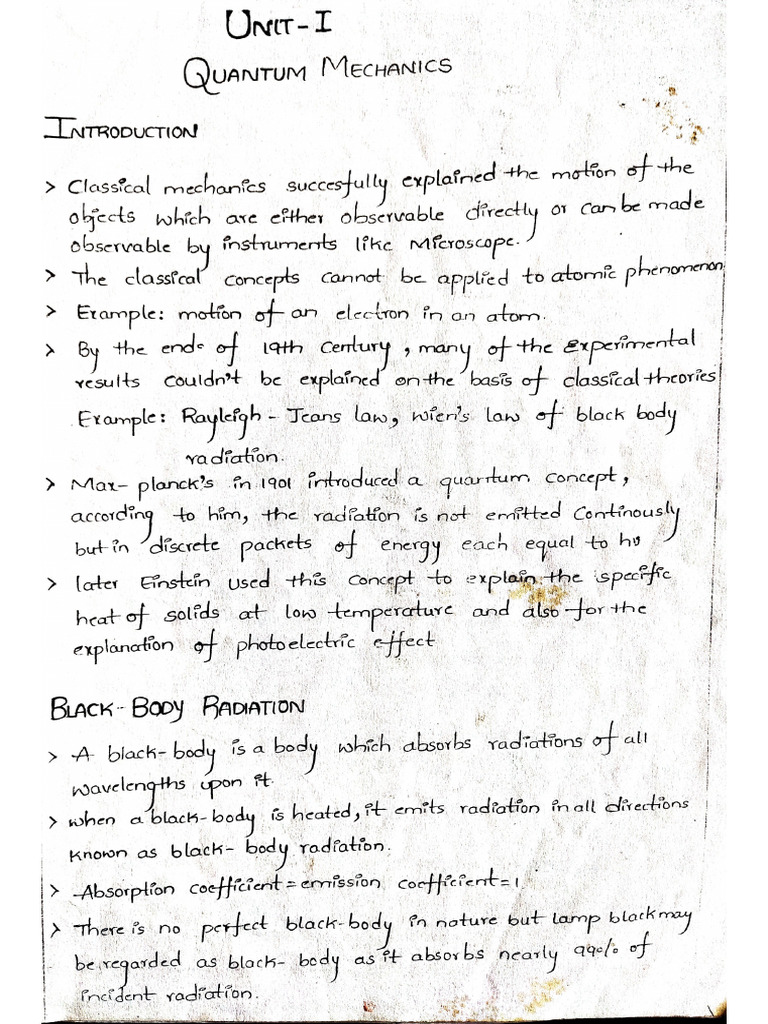 UNIT-I
QUANTUM MECHANICS
INTRODUCTION
> Classical mechanics succesfully explained the motion of the
objects which are either observable directly or can be made
observable by instruments like Microscope.
> The classical concepts cannot be applied to atomic phenomenon
> Example: motion of an electron in an atom.
> By the end of 19th Century, many of the experimental
results couldn't be explained on the basis of classical theories
Example: Rayleigh - Jeans law, wien's law of black body
radiation.
> Max-planck's in 1901 introduced a quantum concept,
according to him, the radiation is not emitted continously
but in discrete packets of energy each equal to hν
> later Einstein used this concept to explain the specific
heat of solids at low temperature and also for the
explanation of photoelectric effect
BLACK-BODY RADIATION
> A black-body is a body which absorbs radiations of all
wavelengths upon it.
> when a black-body is heated, it emits radiation in all directions
known as black-body radiation.
> Absorption coefficient = emission coefficient = 1
> There is no perfect black-body in nature but lamp black may
be regarded as black-body as it absorbs nearly 99% of
incident radiation.